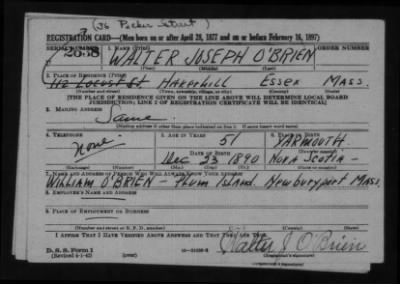 (36 Pecker Street)
REGISTRATION CARD—(Men born on or after April 28, 1877 and on or before February 16, 1897)
SERIAL NUMBER 1. NAME (Print)
2638 WALTER JOSEPH O'BRIEN
(First) (Middle) (Last)
2. PLACE OF RESIDENCE (Print)
112 Locust St HAVERHILL ESSEX MASS.
(Number and street) (Town, township, village, or city) (County) (State)
[THE PLACE OF RESIDENCE GIVEN ON THE LINE ABOVE WILL DETERMINE LOCAL BOARD
JURISDICTION; LINE 2 OF REGISTRATION CERTIFICATE WILL BE IDENTICAL]
3. MAILING ADDRESS
Same
(Mailing address if other than place indicated on line 2. If same insert word same)
4. TELEPHONE 5. AGE IN YEARS 6. PLACE OF BIRTH
None 51 YARMOUTH
DATE OF BIRTH (Town or county)
Dec 23 1890 NOVA SCOTIA —
(Mo.) (Day) (Yr.) (State or country)
7. NAME AND ADDRESS OF PERSON WHO WILL ALWAYS KNOW YOUR ADDRESS
WILLIAM O'BRIEN — Plum Island Newburyport MASS.
8. EMPLOYER'S NAME AND ADDRESS
9. PLACE OF EMPLOYMENT OR BUSINESS
(Number and street or R. F. D. number) (Town) (County) (State)
I AFFIRM THAT I HAVE VERIFIED ABOVE ANSWERS AND THAT THEY ARE TRUE.
D. S. S. Form 1
(Revised 4-1-42) (over)
Walter J. O'Brien